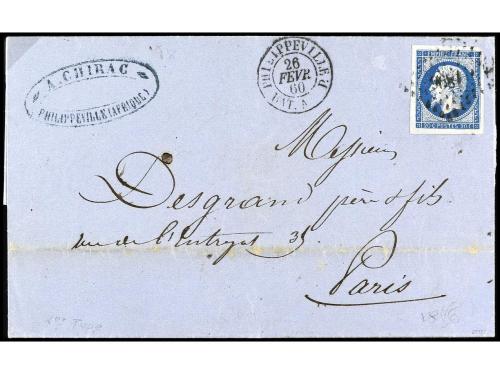 A. CHIRAC
PHILIPPEVILLE (AFRIQUE)
PHILIPPEVILLE
26
FEVR
60
BAT. A
EMPIRE FRANC
20 C POSTES 20 C
Messieurs
Desgrand père & fils
rue de l'Entrepot 35
Paris
1er Type